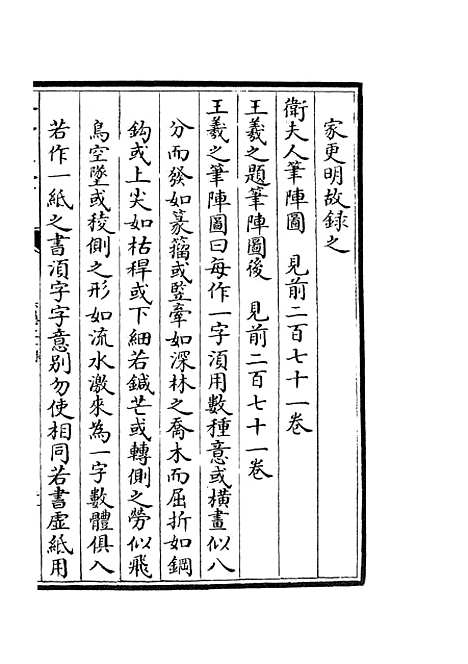 家更明故録之
衛夫人筆陣圖　見前二百七十一卷
王羲之題筆陣圖後　見前二百七十一卷
王羲之筆陣圖曰每作一字湏用數種意或橫畫似八
分而發如篆籀或竪牽如深林之喬木而屈折如鋼
鈎或上尖如枯稈或下細若鍼芒或轉側之勞似飛
鳥空墜或稜側之形如流水激來為一字數體俱入
若作一紙之書湏字字意别勿使相同若書虛紙用